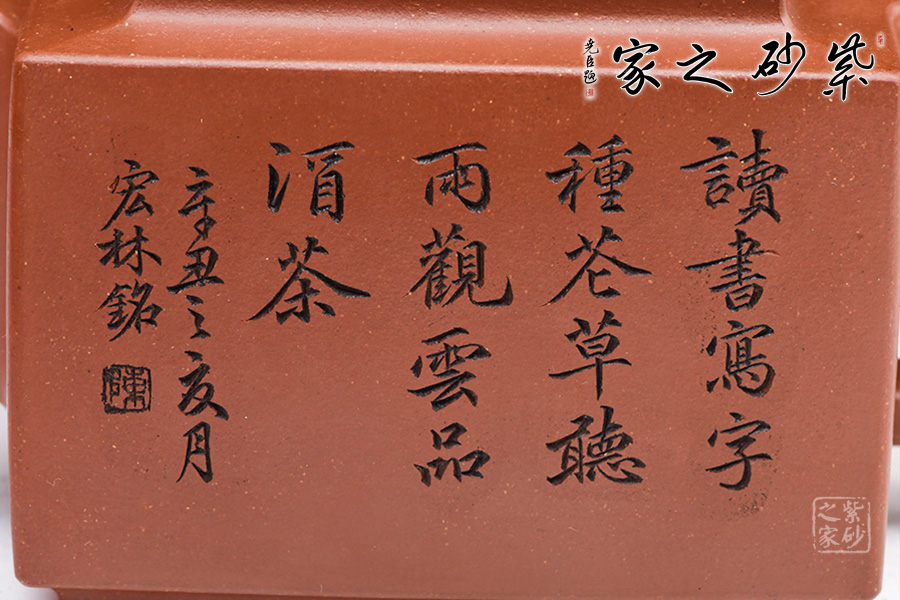 紫砂之家
堯臣題
讀書寫字
種花草聽
雨觀雲品
酒茶
辛丑之夏月
宏林銘
陳
紫砂
之家